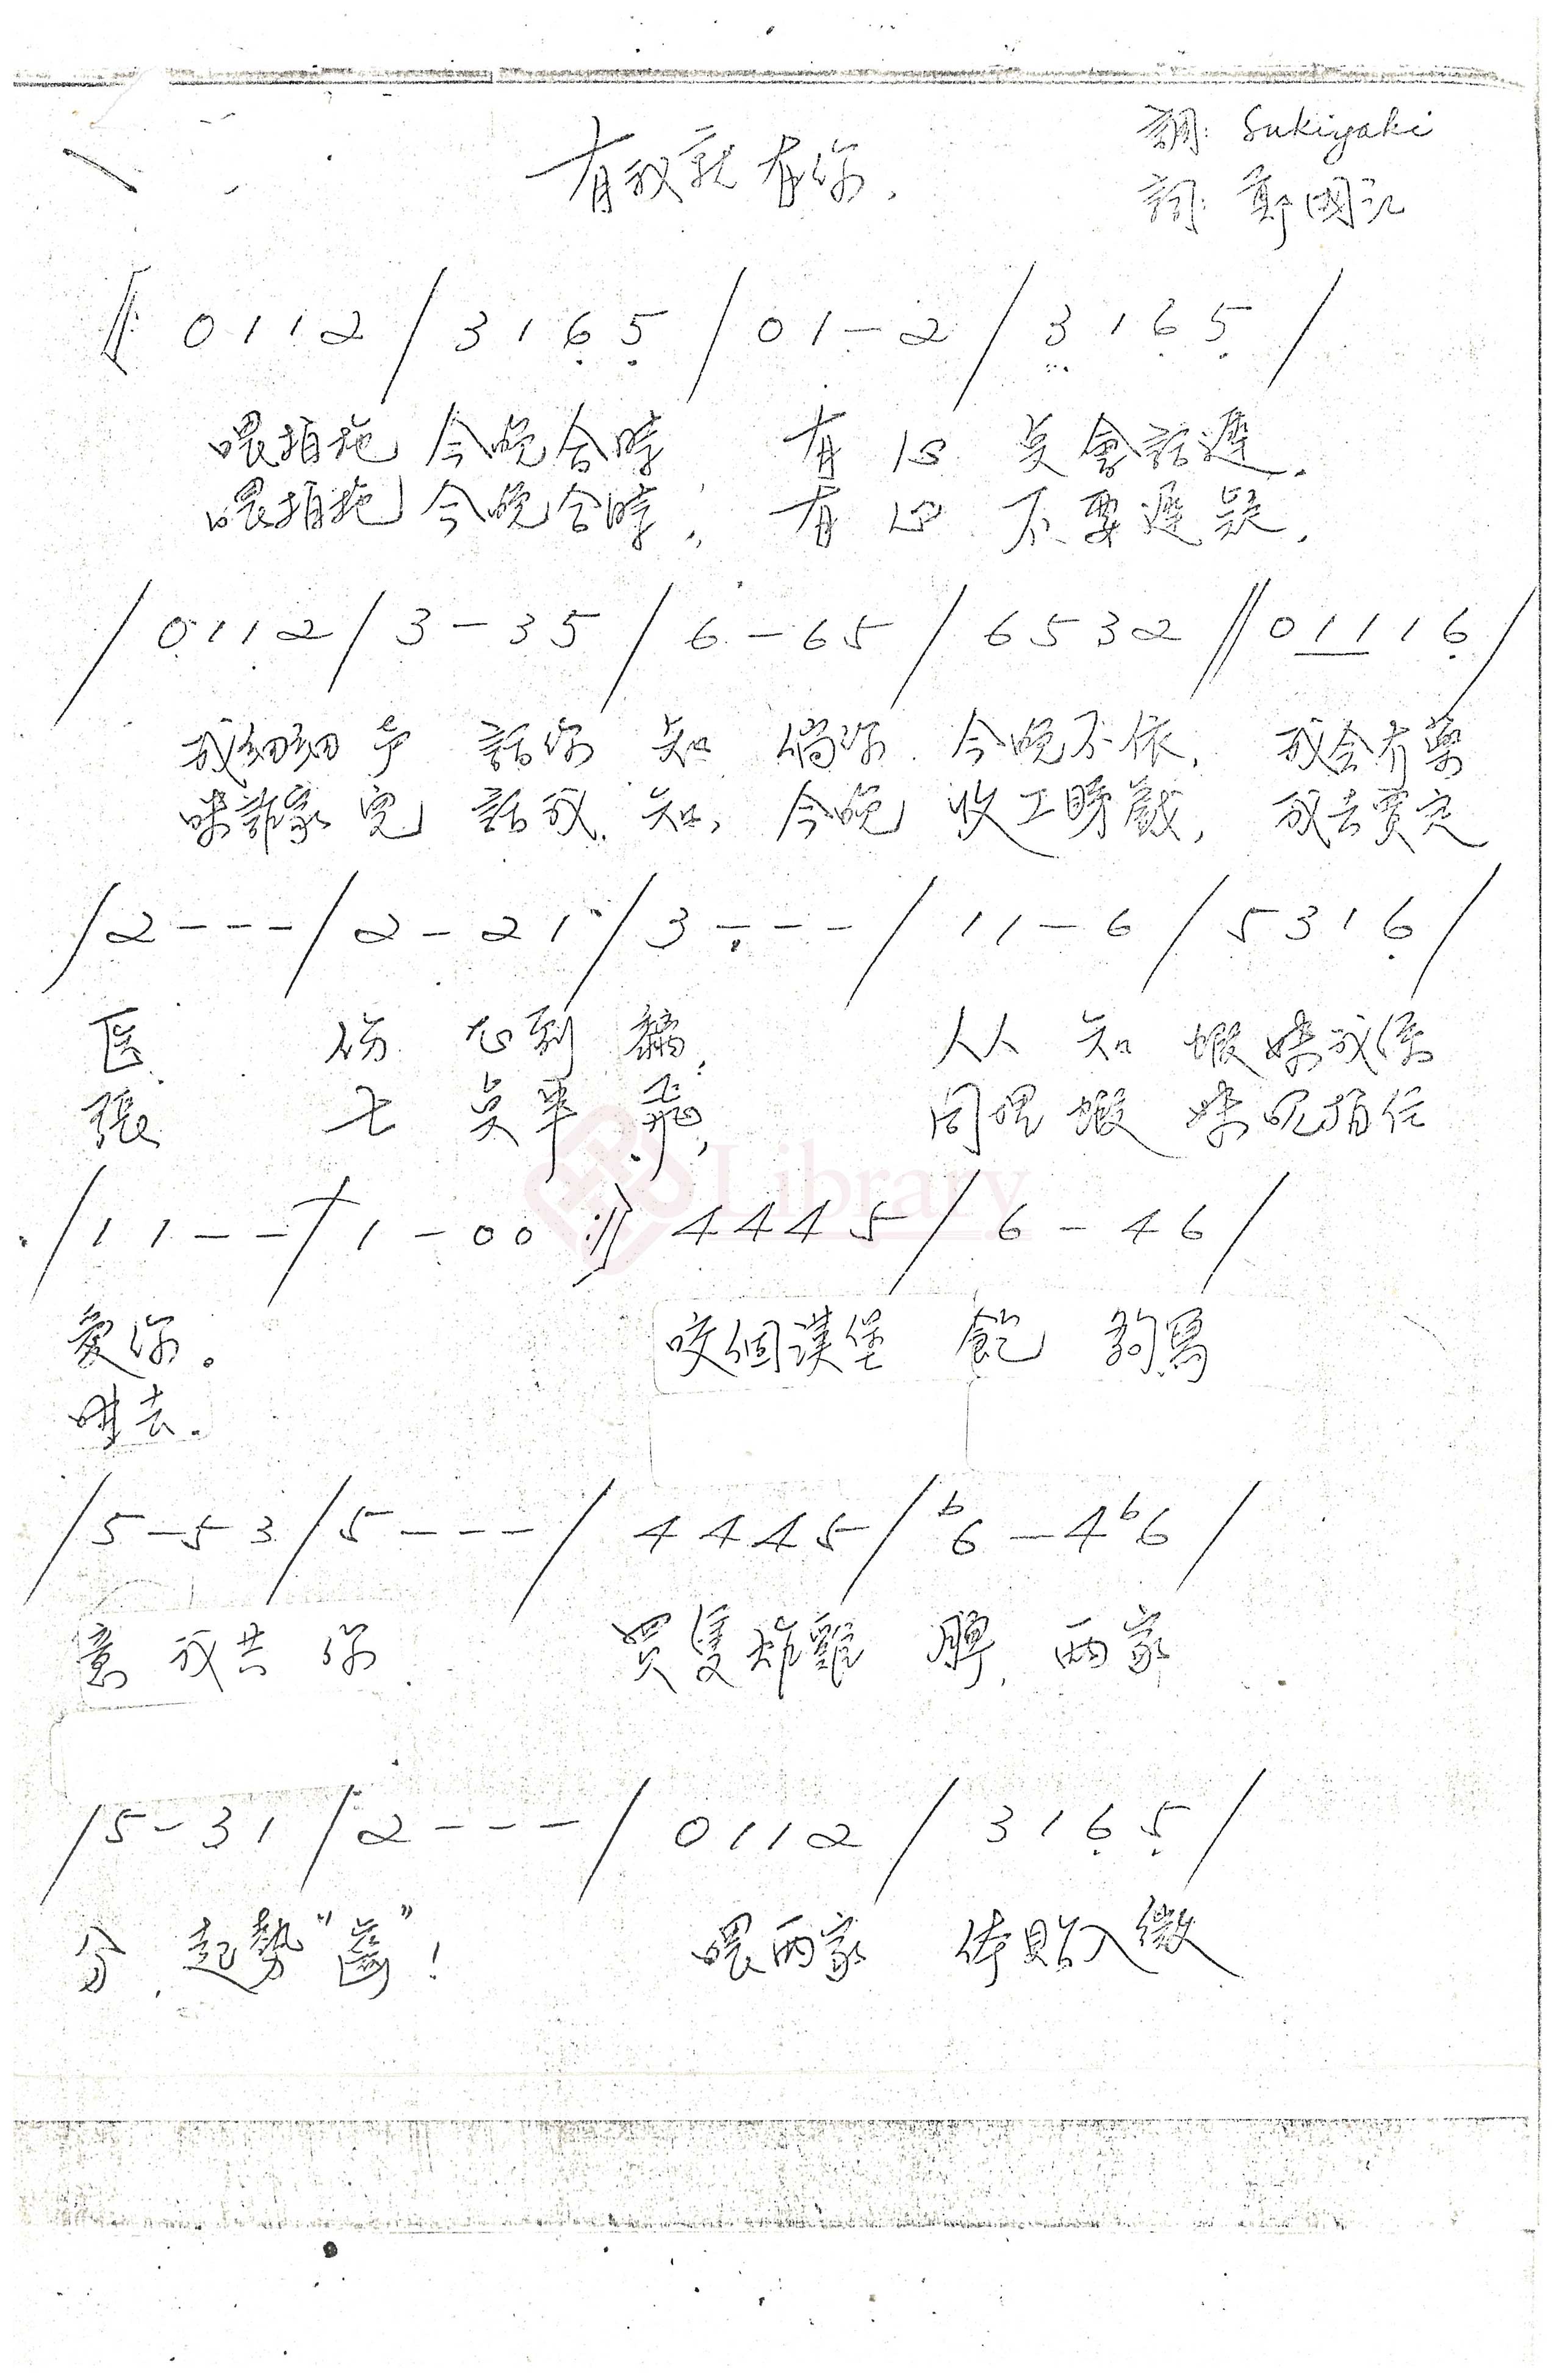 有我就有你.
調: Sukiyaki
詞: 鄭國江
‖: 0 1 1 2 / 3 1 6̣ 5̣ / 0 1 - 2 / 3 1 6̣ 5̣ /
喂拍拖 今晚合時 有心 點會話遲.
喂拍拖 今晚合時, 有心 不要遲疑.
/ 0 1 1 2 / 3 - 3 5 / 6 - 6 5 / 6 5 3 2 // 0 1 1 1 6̣ /
我細細聲 話你知 倘你 今晚不依, 我會冇藥
咪詐家 話我知, 今晚 收工睇戲, 我去買定
/ 2 - - - / 2 - 2 1 / 3 - - - / 1 1 - 6 / 5 3 1 6̣ /
医 傷心到 人人知 我係
張 七點半飛, 同埋
/ 1 1 - - / 1 - 0 0 :‖ 4 4 4 5 / 6 - 4 6 /
愛你。
咁去.
咬個漢堡 飽 夠寫
/ 5 - 5 3 / 5 - - - / 4 4 4 5 / b6 - 4 b6 /
意 我共你 買隻炸雞 髀, 兩家
/ 5 - 3 1 / 2 - - - / 0 1 1 2 / 3 1 6̣ 5̣ /
分, 起勢"齒"! 喂兩家 体貼入微
Library